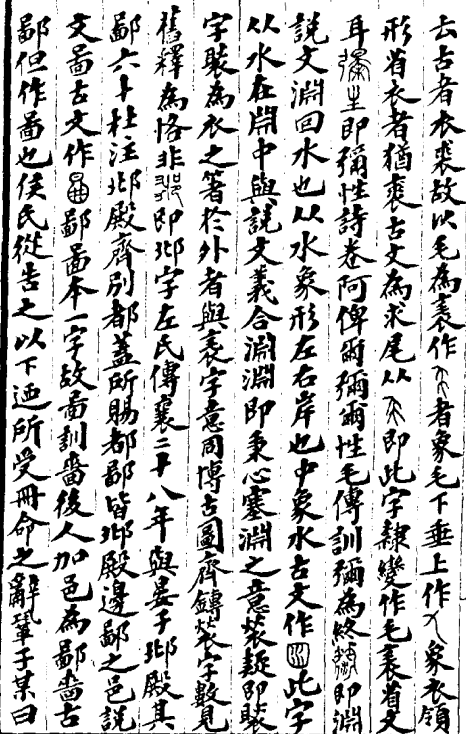 云古者衣裘故以毛為表作者象毛下垂上作人象衣領
形省衣者猶裘古文為求尾从即此字隸變作毛表省文
耳彌生即彌性詩卷阿俾爾彌爾性毛傳訓彌為終即淵
說文淵回水也从水象形左右岸也中象水古文作此字
从水在𣶒中與說文義合淵淵即秉心塞淵之意
字裝為衣之著於外者與表字意同博古圖齊鎛字數見
舊釋為恪非即邶字左氏傳襄二十八年與晏子邶殿其
鄙六十杜注邶殿齊別都蓋所賜都鄙皆邶殿邊鄙之邑說
文啚古文作鄙啚本一字故啚訓嗇後人加邑為鄙嗇古
鄙但作啚也侯氏從告之以下迺所受冊命之辭鞏子某曰